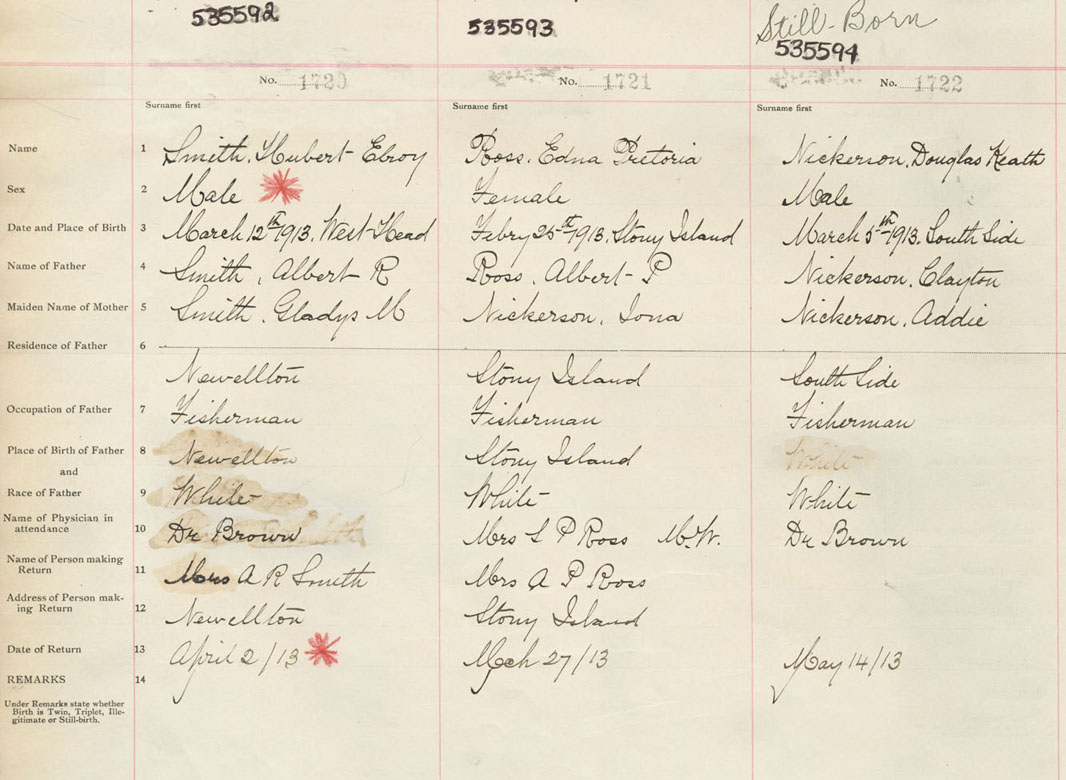 Still-Born
535592 535593 535594
No. 1720 No. 1721 No. 1722
Surname first Surname first Surname first
Name 1 Smith, Hubert Elroy Ross, Edna Pretoria Nickerson, Douglas Keath
Sex 2 Male Female Male
Date and Place of Birth 3 March 12th 1913. West Head Febry 25th 1913. Stony Island March 5th 1913. South Side
Name of Father 4 Smith, Albert R Ross, Albert P Nickerson, Clayton
Maiden Name of Mother 5 Smith, Gladys M Nickerson, Iona Nickerson, Addie
Residence of Father 6
Newellton Stony Island South Side
Occupation of Father 7 Fisherman Fisherman Fisherman
Place of Birth of Father 8 Newellton Stony Island White
and
Race of Father 9 White White White
Name of Physician in
attendance 10 Dr Brown Mrs S P Ross M.W. Dr Brown
Name of Person making
Return 11 Mrs A R Smith Mrs A P Ross
Address of Person mak-
ing Return 12 Newellton Stony Island
Date of Return 13 April 2/13 Mch 27/13 May 14/13
REMARKS 14
Under Remarks state whether
Birth is Twin, Triplet, Ille-
gitimate or Still-birth.